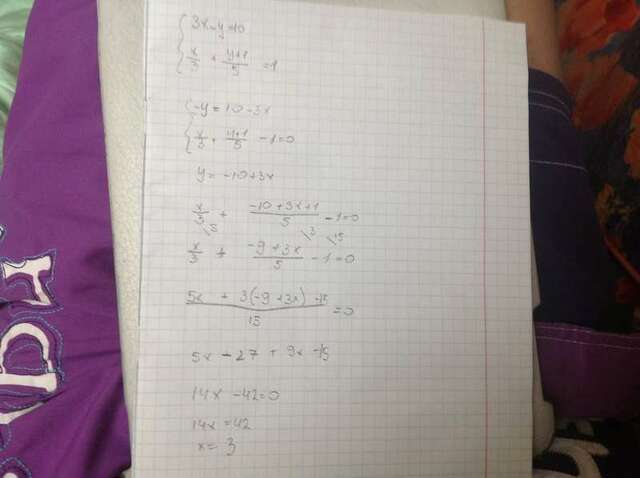 3x - y = 10
x/3 + y+1/5 = 1
-y = 10 - 3x
x/3 + y+1/5 - 1 = 0
y = -10 + 3x
x/3 + -10 + 3x + 1/5 - 1 = 0
5 3 15
x/3 + -9 + 3x/5 - 1 = 0
5x + 3(-9 + 3x) - 15/15 = 0
5x - 27 + 9x - 15
14x - 42 = 0
14x = 42
x = 3